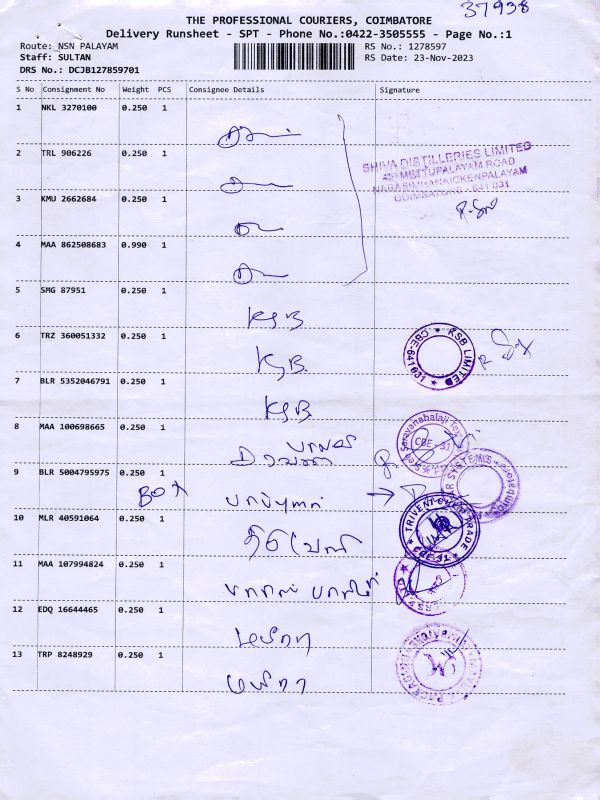 37938
THE PROFESSIONAL COURIERS, COIMBATORE
Delivery Runsheet - SPT - Phone No.:0422-3505555 - Page No.:1
Route: NSN PALAYAM
RS No.: 1278597
Staff: SULTAN
RS Date: 23-Nov-2023
DRS No.: DCJB127859701
S No Consignment No Weight PCS Consignee Details Signature
1 NKL 3270100 0.250 1
2 TRL 906226 0.250 1
SHIVA DISTILLERIES LIMITED
METTUPALAYAM ROAD
NARASIMHANAICKENPALAYAM
COIMBATORE - 641 031
3 KMU 2662684 0.250 1
4 MAA 862508683 0.990 1
5 SMG 87951 0.250 1
KSB
6 TRZ 360051332 0.250 1
KSB
KSB LIMITED ★ CBE-641031 ★
7 BLR 5352046791 0.250 1
KSB
8 MAA 100698665 0.250 1
CBE - 31
9 BLR 5004795975 0.250 1
BOX
10 MLR 40591064 0.250 1
CBE-31
11 MAA 107994824 0.250 1
12 EDQ 16644465 0.250 1
13 TRP 8248929 0.250 1